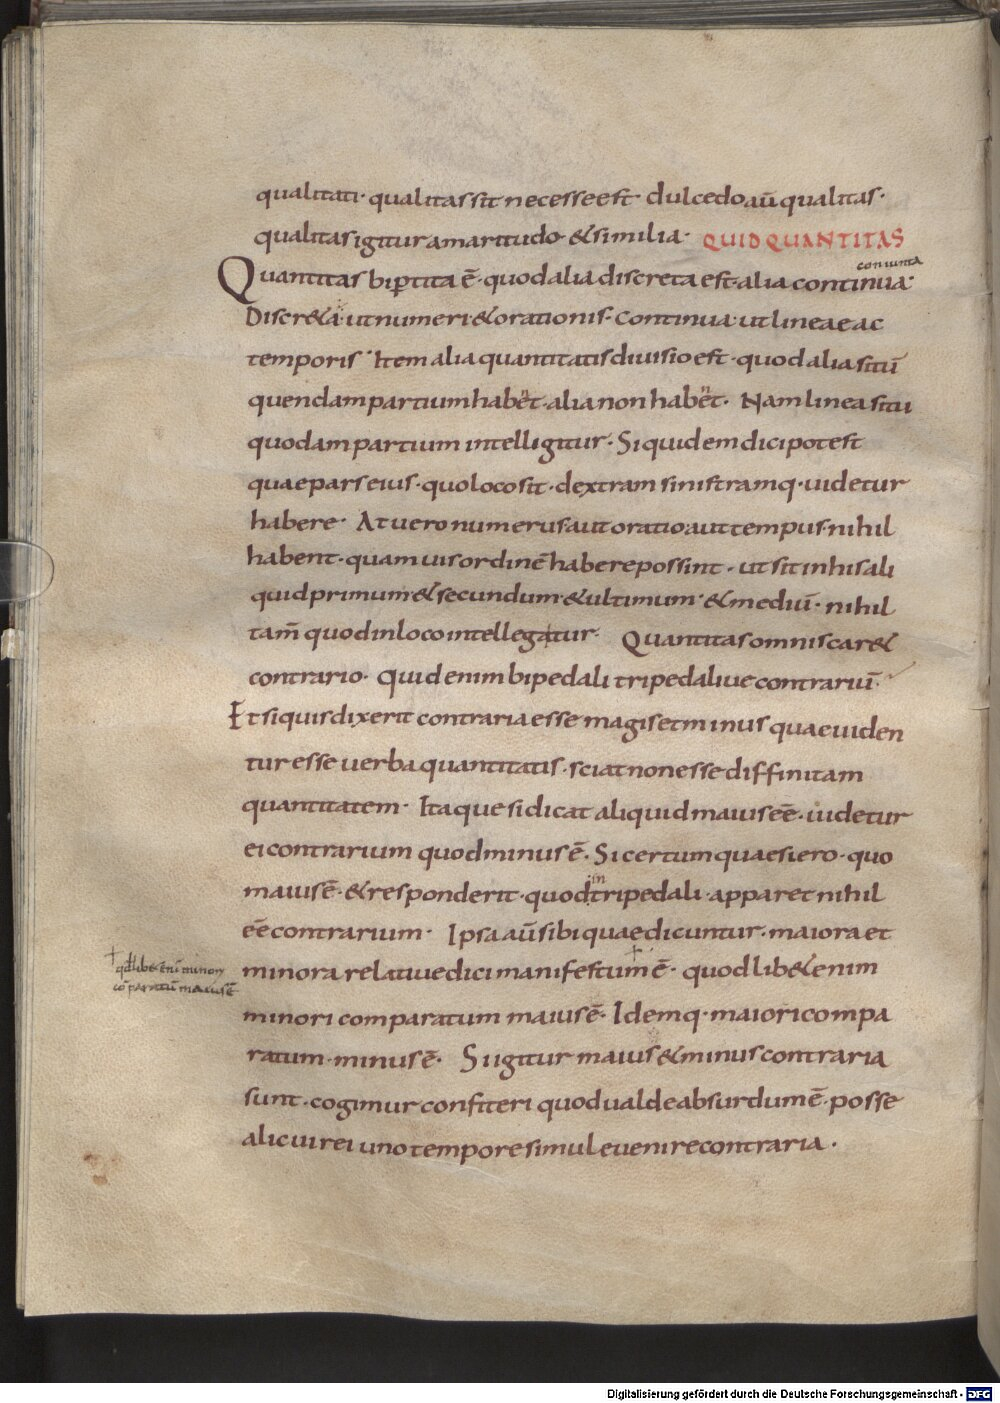 qualitati· qualitas sit necesse est dulcedo aū qualitas·
qualitas igitur amaritudo· & similia· QUID QUANTITAS
coniunta
Quantitas bip̄tita ē· quod alia discreta est· alia continua·
Discr&a· ut numeri· & orationis· Continua· ut lineae ac
temporis· Item alia quantitatis diuisio est· quod alia sitū
quendam partium habēt· alia non habēt· Nam linea situ
quodam partium intelligitur· Siquidem dici potest
quae pars eius· quo loco sit· dextram sinistramq· uidetur
habere· At uero numerus aut oratio aut tempus· nihil
habent· quamuis ordinē habere possint· ut sit in his ali
quid primum & secundum· & ultimum· & mediū· nihil
tam̄ quod in loco intellegatur· Quantitas omnis car&
contrario· Quid enim bipedali tripedaliue contrariū·
Et si quis dixerit contraria esse magis et minus quae uiden
tur esse uerba quantitatis· sciat non esse diffinitam
quantitatem· Itaque si dicat aliquid maius eē· uidetur
ei contrarium quod minus ē· Si certum quaesiero· quo
maius ē· & responderit· quod in tripedali· apparet nihil
eē contrarium· Ipsa aū sibi quae dicuntur· maiora et
minora relatiue dici manifestum ē· quodlib& enim
† qdlib& eni minori
cōparatū maius ē
minori comparatum maius ē· Idemq· maiori compa
ratum· minus ē· Si igitur maius & minus contraria
sunt· cogimur confiteri quod ualde absurdum ē· posse
alicui rei uno tempore simul euenire contraria·
Digitalisierung gefördert durch die Deutsche Forschungsgemeinschaft - DFG